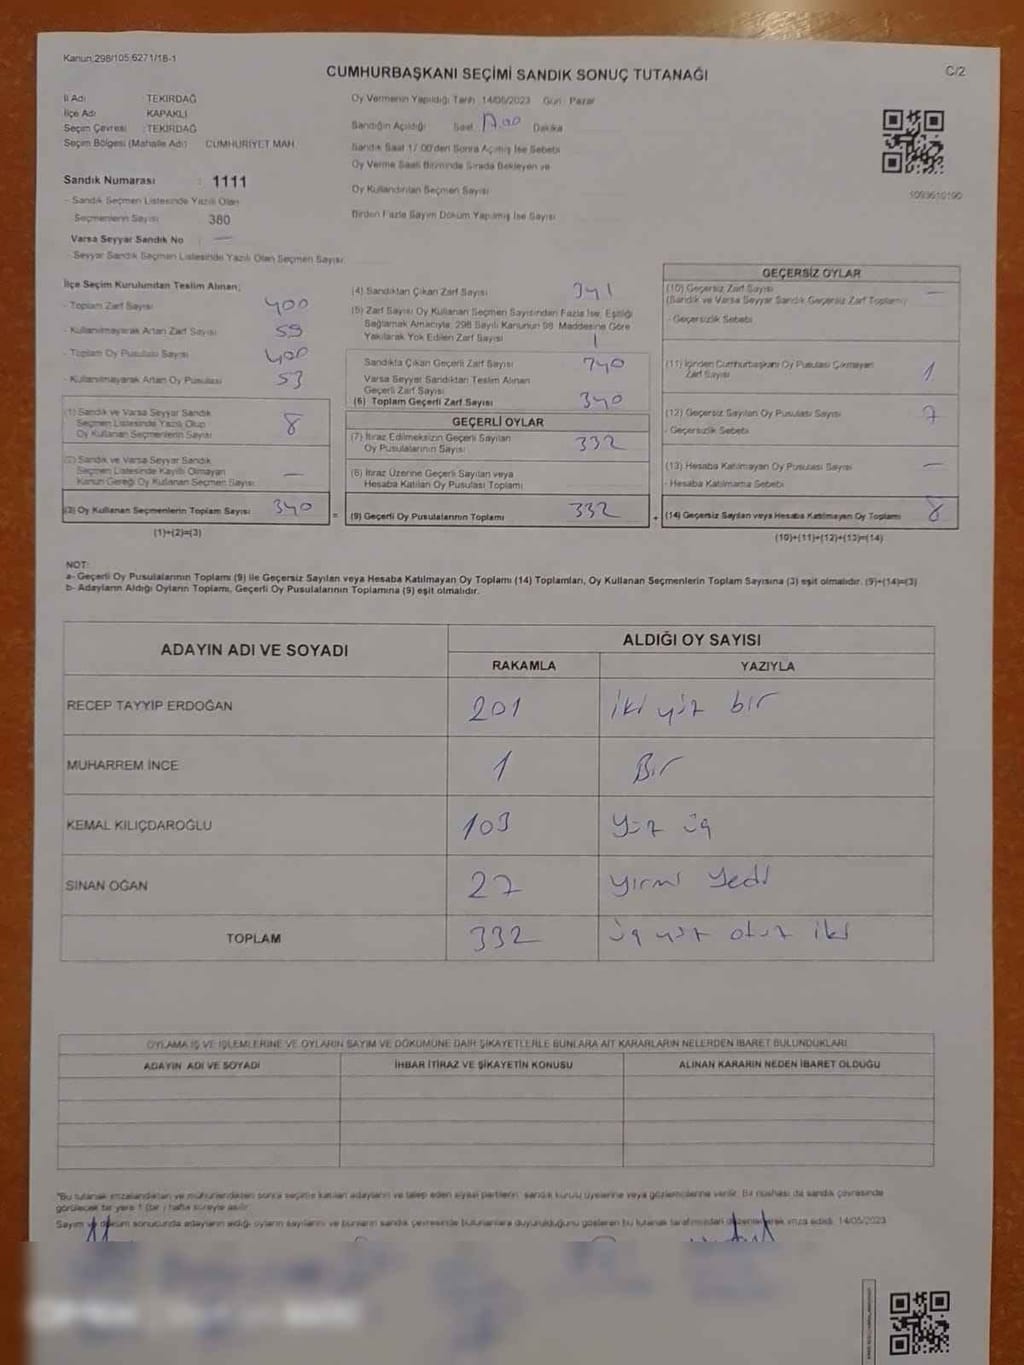 Kanun:298/105,6271/18-1
CUMHURBAŞKANI SEÇİMİ SANDIK SONUÇ TUTANAĞI
C/2
İl Adı : TEKİRDAĞ
İlçe Adı : KAPAKLI
Seçim Çevresi : TEKİRDAĞ
Seçim Bölgesi (Mahalle Adı) CUMHURİYET MAH.
Sandık Numarası : 1111
- Sandık Seçmen Listesinde Yazılı Olan
Seçmenlerin Sayısı 380
Varsa Seyyar Sandık No : —
- Seyyar Sandık Seçmen Listesinde Yazılı Olan Seçmen Sayısı:
Oy Vermenin Yapıldığı Tarih: 14/05/2023 Gün: Pazar
Sandığın Açıldığı Saat: 17.00 Dakika
Sandık Saat 17:00'den Sonra Açılmış İse Sebebi
Oy Verme Saati Bitiminde Sırada Bekleyen ve
Oy Kullandırılan Seçmen Sayısı
Birden Fazla Sayım Döküm Yapılmış İse Sayısı
1093610190
İlçe Seçim Kurulundan Teslim Alınan;
- Toplam Zarf Sayısı 400
- Kullanılmayarak Artan Zarf Sayısı 59
- Toplam Oy Pusulası Sayısı 400
- Kullanılmayarak Artan Oy Pusulası 53
(1) Sandık ve Varsa Seyyar Sandık
Seçmen Listesinde Yazılı Olup
Oy Kullanan Seçmenlerin Sayısı 8
(2) Sandık ve Varsa Seyyar Sandık
Seçmen Listesinde Kayıtlı Olmayan
Kanun Gereği Oy Kullanan Seçmen Sayısı —
(3) Oy Kullanan Seçmenlerin Toplam Sayısı 340 =
(1)+(2)=(3)
(4) Sandıktan Çıkan Zarf Sayısı 341
(5) Zarf Sayısı Oy Kullanan Seçmen Sayısından Fazla İse, Eşitliği
Sağlamak Amacıyla, 298 Sayılı Kanunun 98. Maddesine Göre
Yakılarak Yok Edilen Zarf Sayısı 1
Sandıkta Çıkan Geçerli Zarf Sayısı 740
Varsa Seyyar Sandıktan Teslim Alınan
Geçerli Zarf Sayısı
(6) Toplam Geçerli Zarf Sayısı 340
GEÇERLİ OYLAR
(7) İtiraz Edilmeksizin Geçerli Sayılan
Oy Pusulalarının Sayısı 332
(8) İtiraz Üzerine Geçerli Sayılan veya
Hesaba Katılan Oy Pusulası Toplamı
(9) Geçerli Oy Pusulalarının Toplamı 332 +
GEÇERSİZ OYLAR
(10) Geçersiz Zarf Sayısı —
(Sandık ve Varsa Seyyar Sandık Geçersiz Zarf Toplamı)
- Geçersizlik Sebebi
(11) İçinden Cumhurbaşkanı Oy Pusulası Çıkmayan
Zarf Sayısı 1
(12) Geçersiz Sayılan Oy Pusulası Sayısı 7
- Geçersizlik Sebebi
(13) Hesaba Katılmayan Oy Pusulası Sayısı —
- Hesaba Katılmama Sebebi
(14) Geçersiz Sayılan veya Hesaba Katılmayan Oy Toplamı 8
(10)+(11)+(12)+(13)=(14)
NOT:
a- Geçerli Oy Pusulalarının Toplamı (9) ile Geçersiz Sayılan veya Hesaba Katılmayan Oy Toplamı (14) Toplamları, Oy Kullanan Seçmenlerin Toplam Sayısına (3) eşit olmalıdır. (9)+(14)=(3)
b- Adayların Aldığı Oyların Toplamı, Geçerli Oy Pusulalarının Toplamına (9) eşit olmalıdır.
ADAYIN ADI VE SOYADI ALDIĞI OY SAYISI
RAKAMLA YAZIYLA
RECEP TAYYİP ERDOĞAN 201 iki yüz bir
MUHARREM İNCE 1 Bir
KEMAL KILIÇDAROĞLU 103 yüz üç
SİNAN OĞAN 27 yirmi yedi
TOPLAM 332 üç yüz otuz iki
OYLAMA İŞ VE İŞLEMLERİNE VE OYLARIN SAYIM VE DÖKÜMÜNE DAİR ŞİKAYETLERLE BUNLARA AİT KARARLARIN NELERDEN İBARET BULUNDUKLARI
ADAYIN ADI VE SOYADI İHBAR İTİRAZ VE ŞİKAYETİN KONUSU ALINAN KARARIN NEDEN İBARET OLDUĞU
"Bu tutanak imzalandıktan ve mühürlendikten sonra seçime katılan adayların ve talep eden siyasi partilerin sandık kurulu üyelerine veya gözlemcilerine verilir. Bir nüshası da sandık çevresinde
görülecek bir yere 1 (bir) hafta süreyle asılır.
Sayım ve döküm sonucunda adayların aldığı oyların sayılarını ve bunların sandık çevresinde bulunanlara duyurulduğunu gösteren bu tutanak tarafımızdan düzenlenerek imza edildi. 14/05/2023